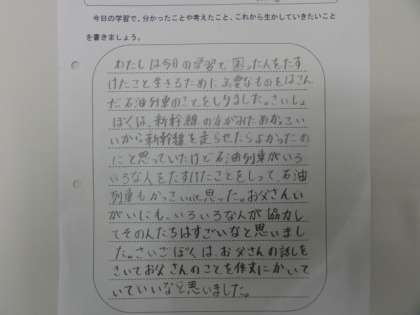 今日の学習で、分かったことや考えたこと、これから生かしていきたいこと
を書きましょう。
わたしは今日の学習で困った人をたす
けたこと
た石油列車のことをしりました。さいしょ
ぼくは、新幹線の方が
いから新幹線を走らせたらよかったの
にと思っていたけど石油列車がいろ
いろな人をたすけたことをしって、石油
列車もかっこいいと思った。お父さんい
がいにも、いろいろな人が協力し
てその人たちはすごいなと思いまし
た。さいごぼくは、お父さんの話しを
きいてお父さんのことを作文にかいて
いていいなと思いました。